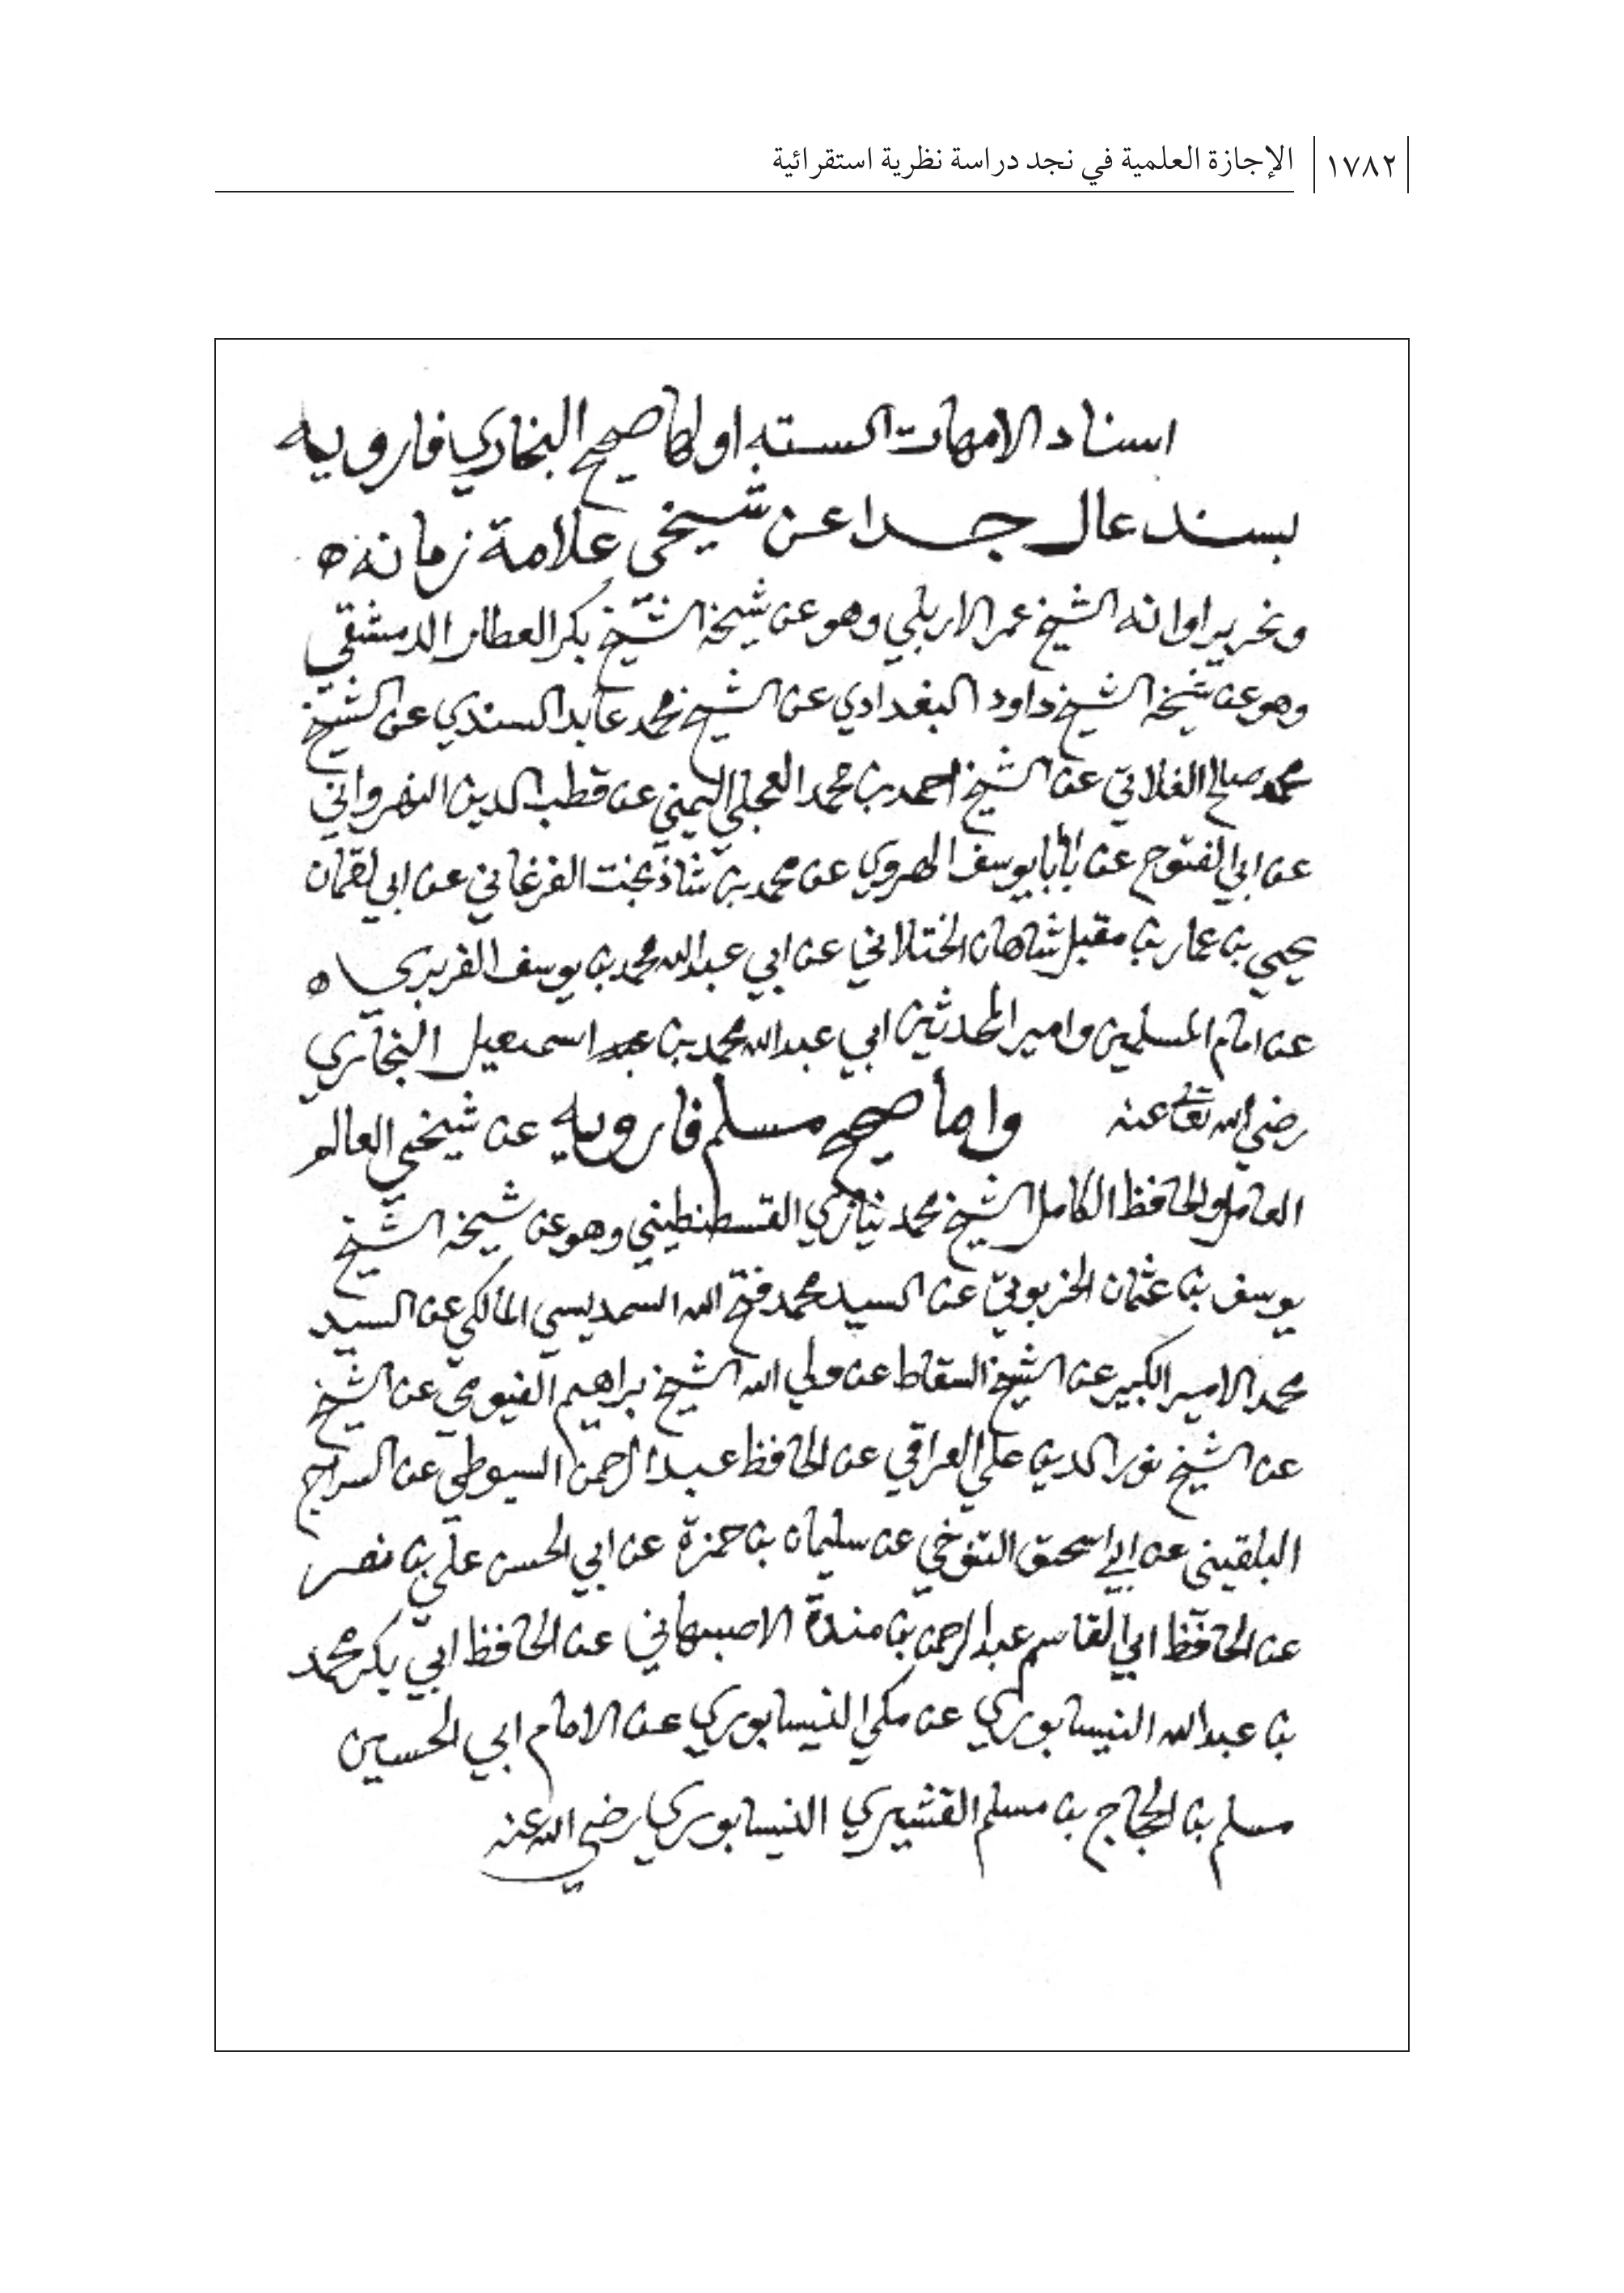 ١٧٨٢ الإجازة العلمية في نجد دراسة نظرية استقرائية
اسناد الامهات السته اولها صحيح البخاري فارويه
بسند عال جدا عن شيخي علامة زمانه
ونحرير اوانه الشيخ عمر الاربلي وهو عن شيخه الشيخ بكر العطار الدمشقي
وهو عن شيخه الشيخ داود البغدادي عن الشيخ محمد عابد السندي عن الشيخ
محمد صالح الفلاني عن الشيخ احمد بن محمد العجلي اليمني عن قطب الدين النهرواني
عن ابي الفتوح عن بابا يوسف الهروي عن محمد بن شاذ بخت الفرغاني عن ابي لقمان
يحيي بن عمار بن مقبل شاهان الختلاني عن ابي عبد الله محمد بن يوسف الفربري
عن امام المسلمين وامير المحدثين ابي عبد الله محمد بن اسمعيل البخاري
رضي الله تعالى عنه واما صحيح مسلم فارويه عن شيخي العالم
العامل والحافظ الكامل الشيخ محمد نيازي القسطنطيني وهو عن شيخه الشيخ
يوسف بن عثمان الخربوتي عن السيد محمد فتح الله السمديسي المالكي عن السيد
محمد الامير الكبير عن الشيخ السقاط عن ولي الله الشيخ براهيم الفيومي عن الشيخ
عن الشيخ نور الدين علي العراقي عن الحافظ عبد الرحمن السيوطي عن السراج
البلقيني عن ابي اسحق التنوخي عن سليمان بن حمزة عن ابي الحسن علي بن نصر
عن الحافظ ابي القاسم عبد الرحمن بن مندة الاصبهاني عن الحافظ ابي بكر محمد
بن عبد الله النيسابوري عن مكي النيسابوري عن الامام ابي الحسين
مسلم بن الحجاج بن مسلم القشيري النيسابوري رضي الله عنه